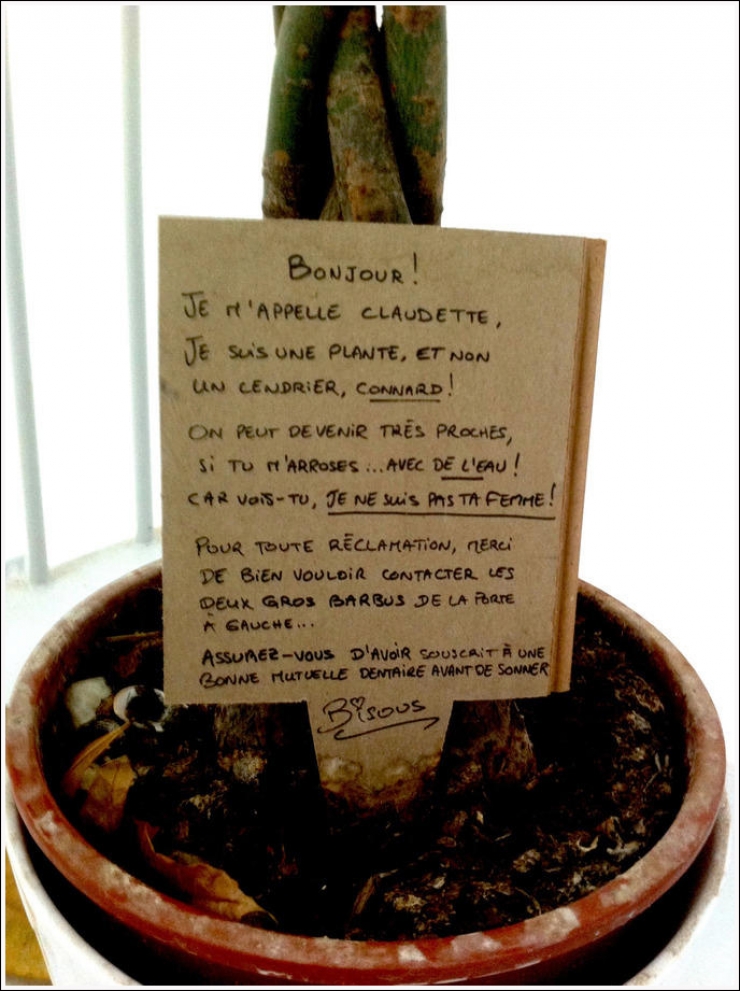 BONJOUR !
JE M'APPELLE CLAUDETTE,
JE SUIS UNE PLANTE, ET NON
UN CENDRIER, CONNARD !
ON PEUT DEVENIR TRÈS PROCHES,
SI TU M'ARROSES ... AVEC DE L'EAU !
CAR VOIS-TU, JE NE SUIS PAS TA FEMME !
POUR TOUTE RÉCLAMATION, MERCI
DE BIEN VOULOIR CONTACTER LES
DEUX GROS BARBUS DE LA PORTE
À GAUCHE...
ASSUREZ-VOUS D'AVOIR SOUSCRIT À UNE
BONNE MUTUELLE DENTAIRE AVANT DE SONNER
Bisous